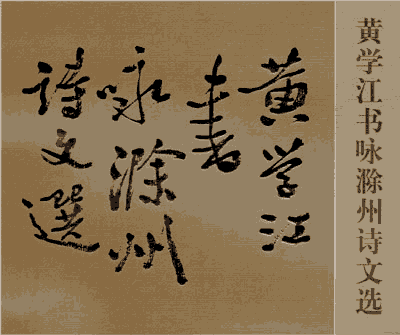 黄学江
書
咏滁州
诗文選
黄学江书咏滁州诗文选